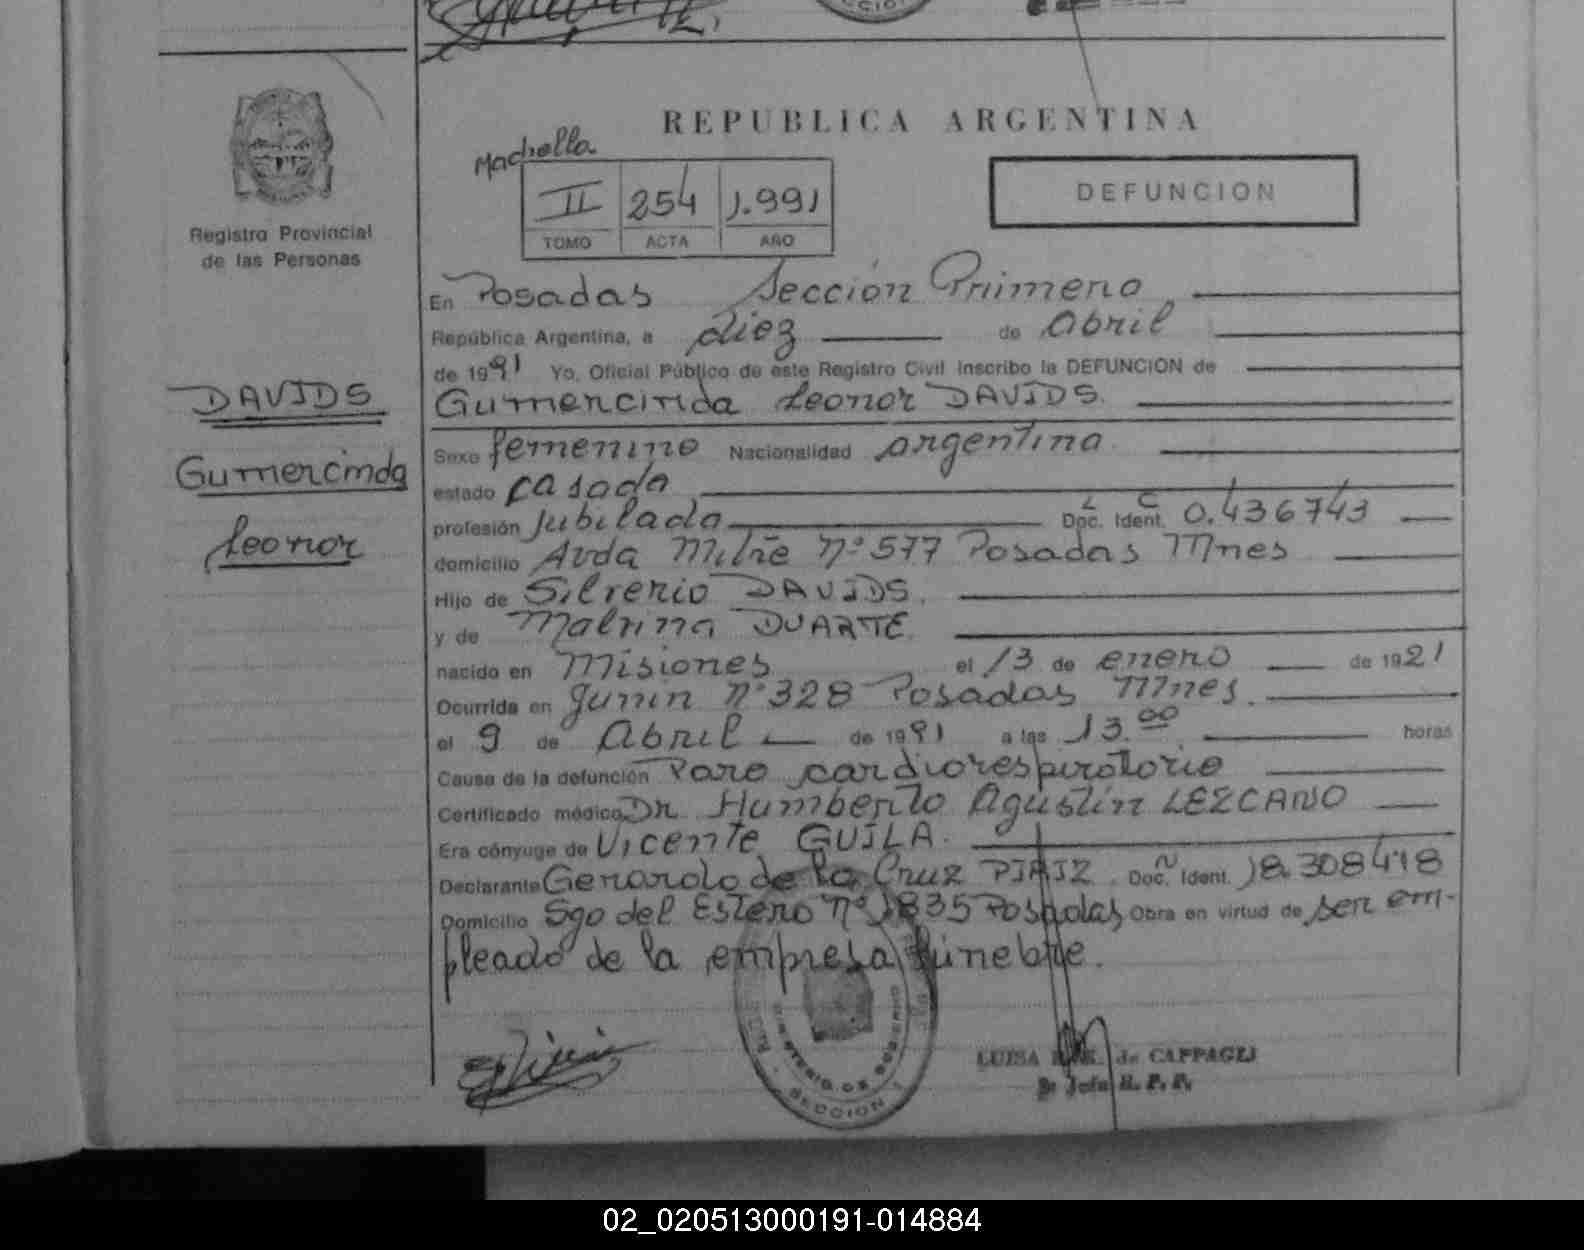 REPUBLICA ARGENTINA
Machella
II 254 1.991
TOMO ACTA AÑO
DEFUNCION
Registro Provincial
de las Personas
DAVIDS
Gumercinda
Leonor
En Posadas Sección Primera
República Argentina, a diez de Abril
de 1991 Yo, Oficial Público de este Registro Civil inscribo la DEFUNCION de
Gumercinda Leonor DAVIDS.
Sexo femenino Nacionalidad argentina.
estado casada
profesión Jubilada Doc. Ident. L C 0.436743
domicilio Avda Mitre Nº 577 Posadas Mnes
Hijo de Silverio DAVIDS.
y de Malvina DUARTE.
nacido en Misiones el 13 de enero de 1921
Ocurrida en Junin Nº 328 Posadas Mnes.
el 9 de Abril de 1991 a las 13.00 horas
Causa de la defunción Paro cardiorespiratorio
Certificado médico Dr. Humberto Agustín LEZCANO
Era cónyuge de Vicente GUILA.
Declarante Gerardo de la Cruz Doc. Ident. Ñ 18.308418
Domicilio Sgo del Estero Nº 1835 Posadas Obra en virtud de ser em-
pleado de la empresa fúnebre.
MINISTERIO DE GOBIERNO
SECCION
LUISA de CAPPAGLI
Jefa R. P. P.
02_020513000191-014884